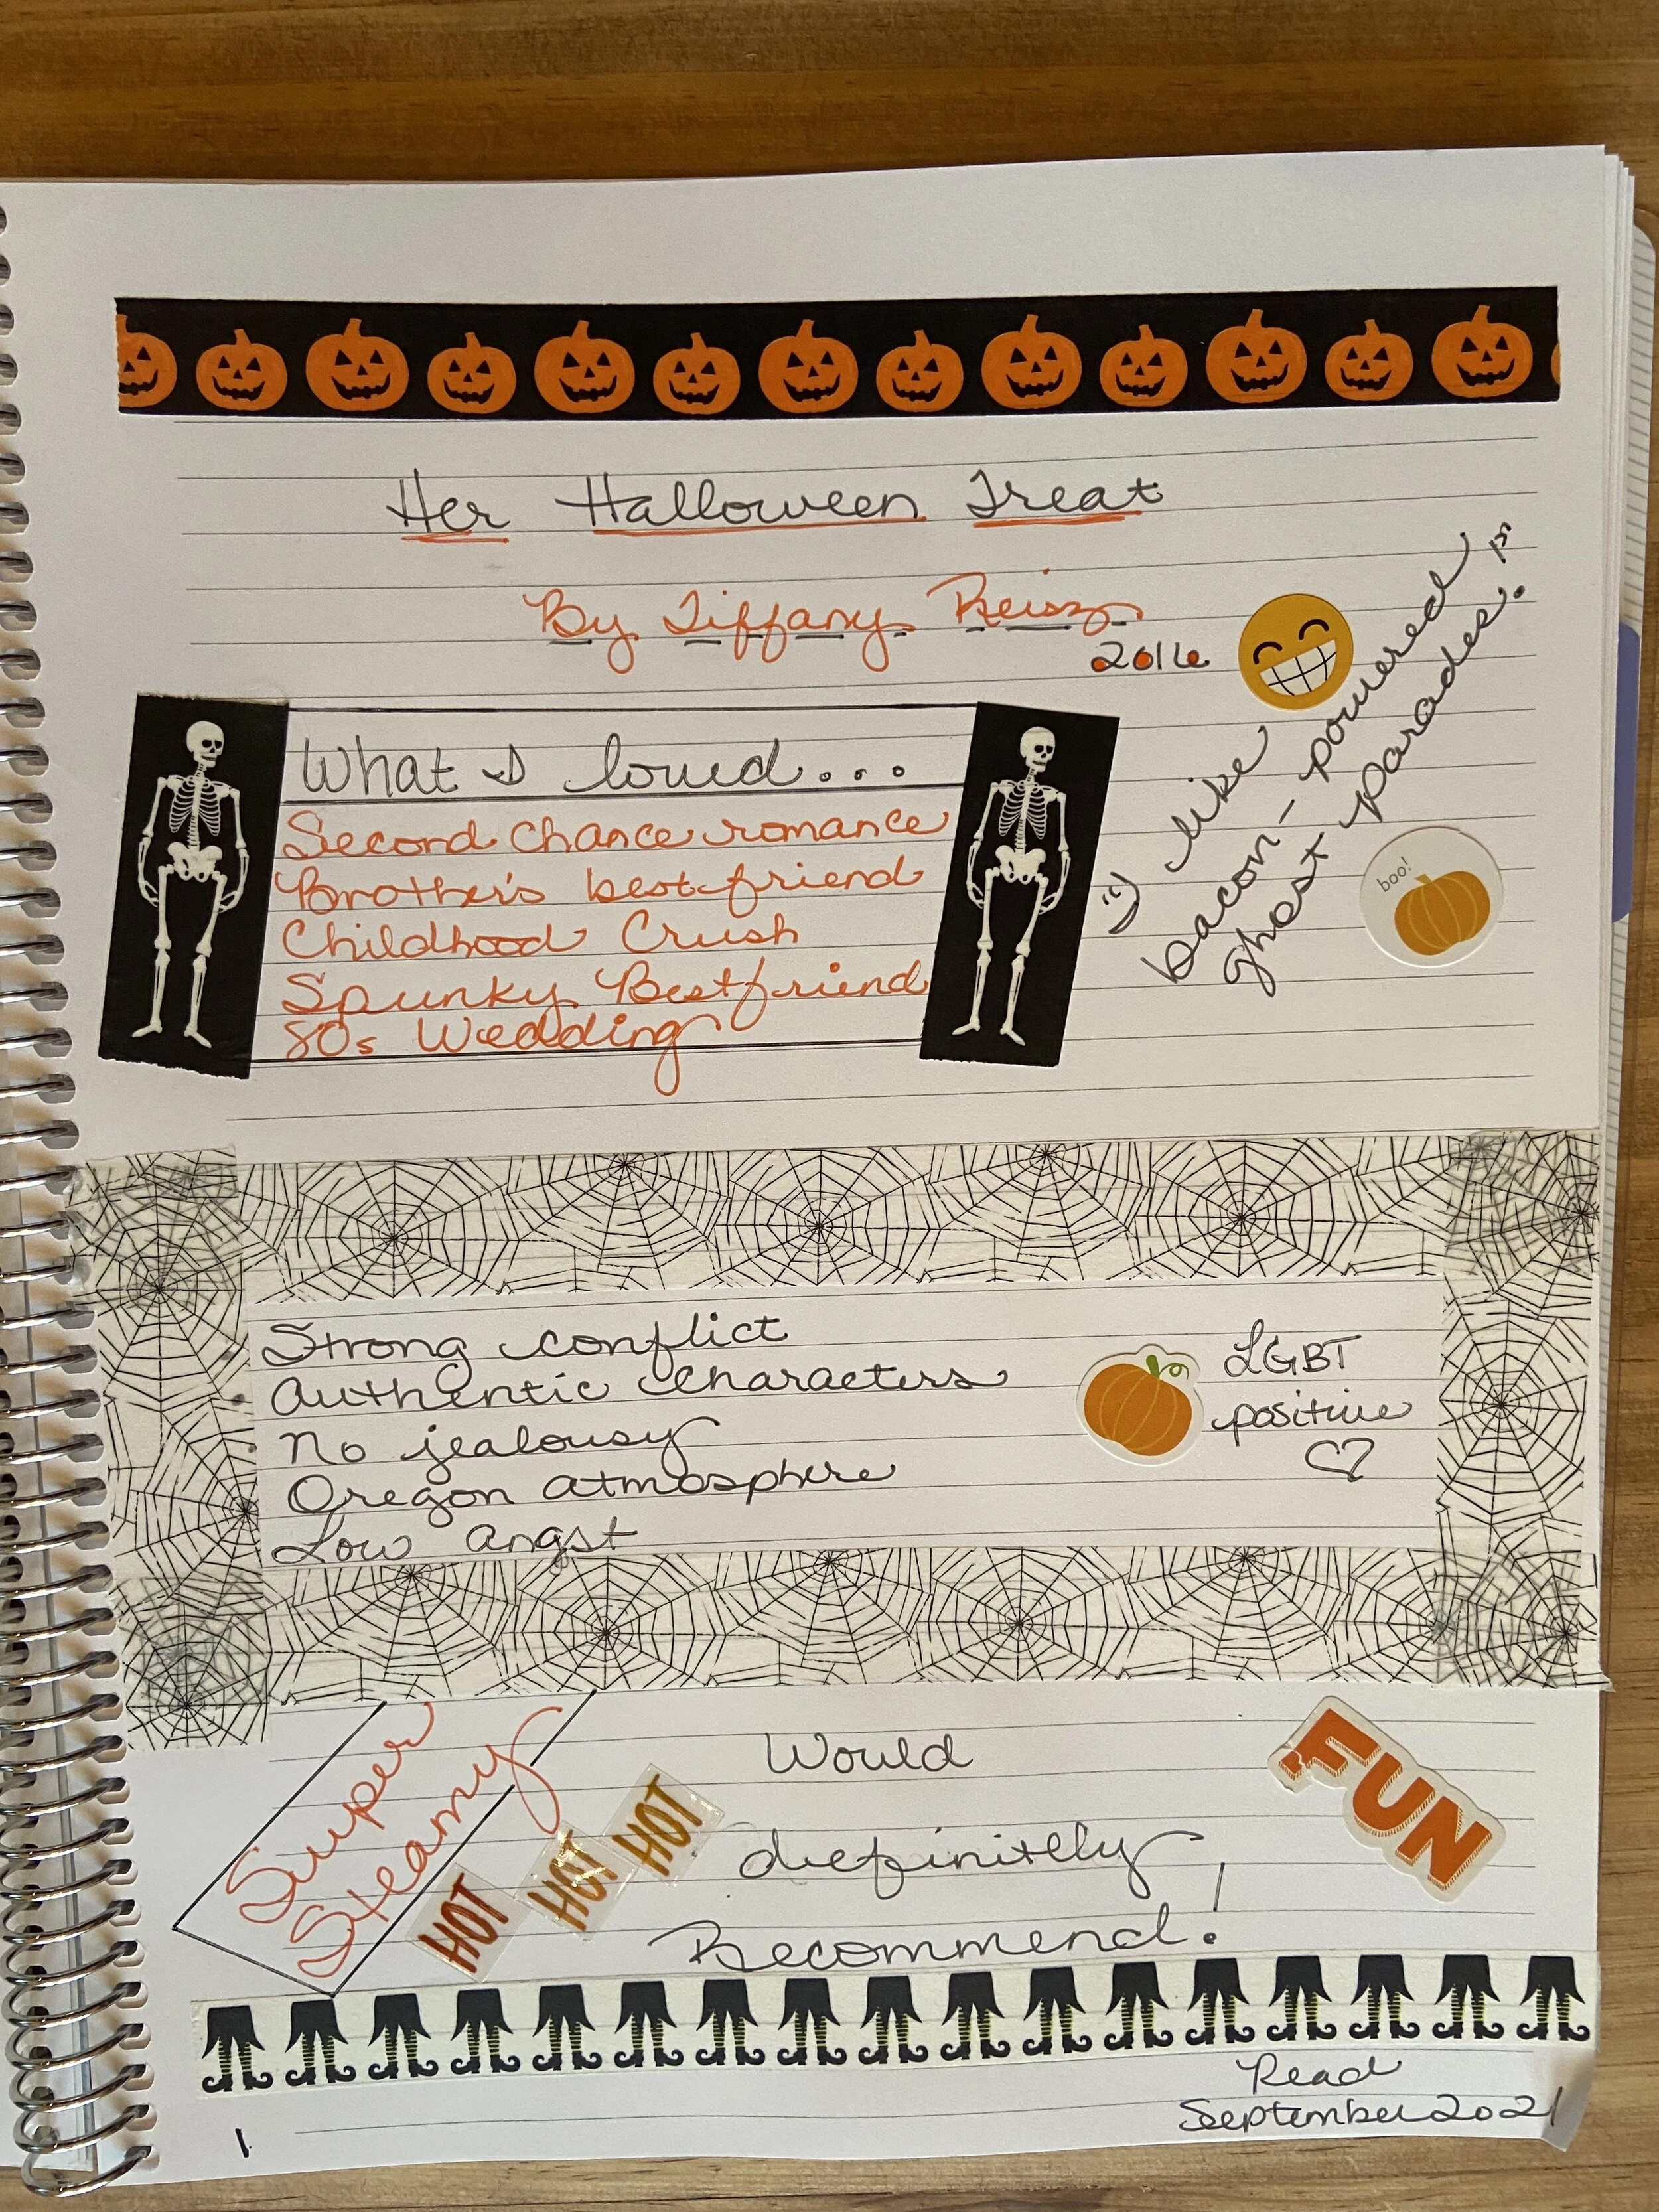 Her Halloween Treat
By Tiffany Reisz
2016
What I loved...
Second chance romance
Brother's best friend
Childhood Crush
Spunky Best friend
80s Wedding
:) like
bacon-powered
ghost parades.
boo!
Strong conflict
Authentic characters
No jealousy
Oregon atmosphere
Low angst
LGBT
positive
Super
Steamy
HOT HOT HOT
Would
definitely
Recommend!
FUN
Read
September 2021
1